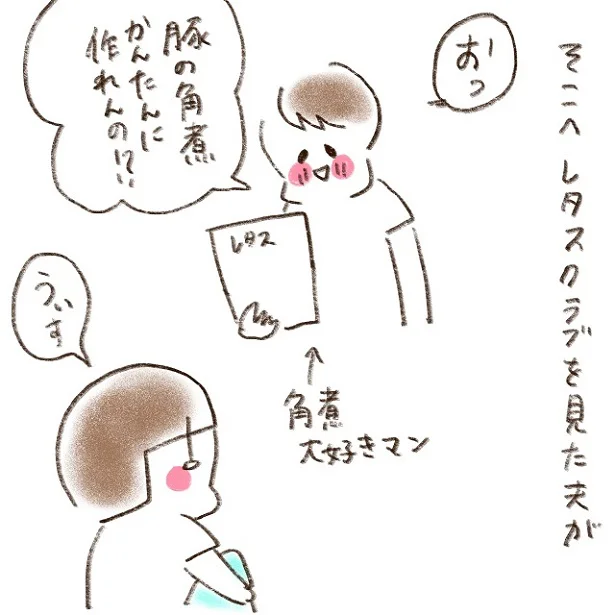 そこへレタスクラブを見た夫が
おっ
豚の角煮
かんたんに
作れんの!?!!
レタス
↑
角煮
大好きマン
うぃす